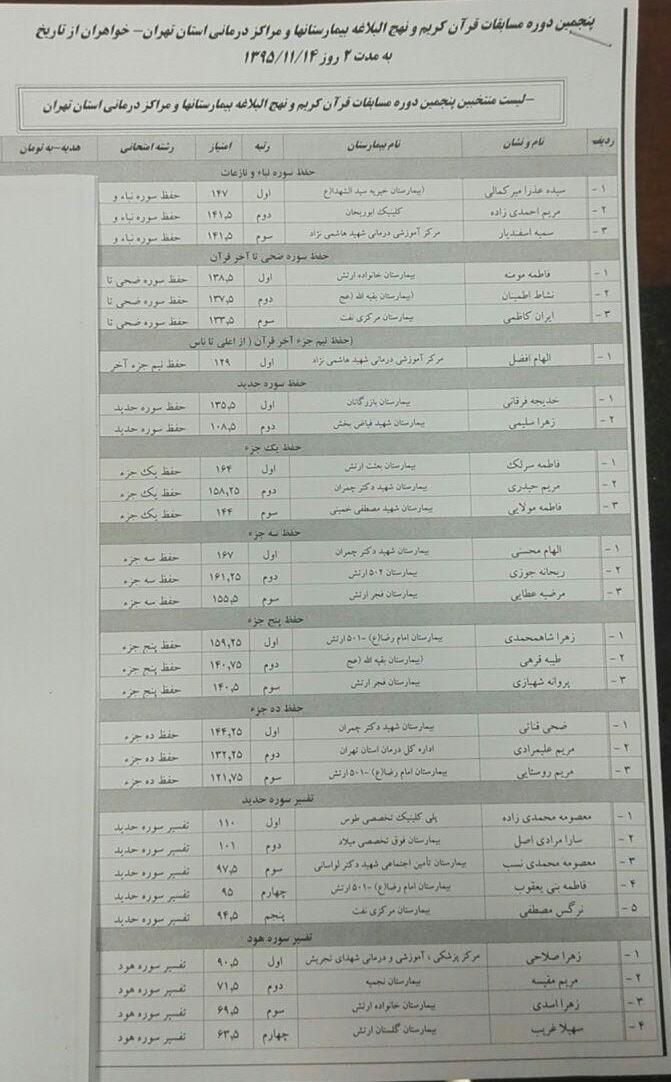 پنجمین دوره مسابقات قرآن کریم و نهج البلاغه بیمارستانها و مراکز درمانی استان تهران – خواهران از تاریخ
۱۳۹۵/۱۱/۱۴ به مدت ۲ روز
-لیست منتخبین پنجمین دوره مسابقات قرآن کریم و نهج البلاغه بیمارستانها و مراکز درمانی استان تهران
ردیف نام و نشان نام بیمارستان رتبه امتیاز رشته امتحانی هدیه-به تومان
حفظ سوره نباء و نازعات
۱ - سیده عذرا میرکمالی (بیمارستان خیریه سید الشهدا(ع اول ۱۴۷ حفظ سوره نباء و
۲ - مریم احمدی زاده کلینیک ابوریحان دوم ۱۴۱,۵ حفظ سوره نباء و
۳ - سمیه اسفندیار مرکز آموزشی درمانی شهید هاشمی نژاد سوم ۱۴۱,۵ حفظ سوره نباء و
حفظ سوره ضحی تا آخر قرآن
۱ - فاطمه مومنه بیمارستان خانواده ارتش اول ۱۳۸,۵ حفظ سوره ضحی تا
۲ - نشاط اطمینان (بیمارستان بقیه الله (عج دوم ۱۳۷,۵ حفظ سوره ضحی تا
۳ - ایران کاظمی بیمارستان مرکزی نفت سوم ۱۳۳,۵ حفظ سوره ضحی تا
(حفظ نیم جزء آخر قرآن ( از اعلی تا ناس
۱ - الهام افضل مرکز آموزشی درمانی شهید هاشمی نژاد اول ۱۲۹ حفظ نیم جزء آخر
حفظ سوره حدید
۱ - خدیجه فرقانی بیمارستان بازرگانان اول ۱۳۵,۵ حفظ سوره حدید
۲ - زهرا سلیمی بیمارستان شهید فیاض بخش دوم ۱۰۸,۵ حفظ سوره حدید
حفظ یک جزء
۱ - فاطمه سرلک بیمارستان بعثت ارتش اول ۱۶۴ حفظ یک جزء
۲ - مریم حیدری بیمارستان شهید دکتر چمران دوم ۱۵۸,۲۵ حفظ یک جزء
۳ - فاطمه مولایی بیمارستان شهید مصطفی خمینی سوم ۱۴۴ حفظ یک جزء
حفظ سه جزء
۱ - الهام محسنی بیمارستان شهید دکتر چمران اول ۱۶۷ حفظ سه جزء
۲ - ریحانه جوزی بیمارستان ۵۰۲ ارتش دوم ۱۶۱,۲۵ حفظ سه جزء
۳ - مرضیه عطایی بیمارستان فجر ارتش سوم ۱۵۵,۵ حفظ سه جزء
حفظ پنج جزء
۱ - زهرا شاهمحمدی بیمارستان امام رضا(ع) -۵۰۱ ارتش اول ۱۵۹,۲۵ حفظ پنج جزء
۲ - طیبه فرهی (بیمارستان بقیه الله (عج دوم ۱۴۰,۷۵ حفظ پنج جزء
۳ - پروانه شهبازی بیمارستان فجر ارتش سوم ۱۴۰,۵ حفظ پنج جزء
حفظ ده جزء
۱ - ضحی قنائی بیمارستان شهید دکتر چمران اول ۱۴۴,۲۵ حفظ ده جزء
۲ - مریم علیمرادی اداره کل درمان استان تهران دوم ۱۳۲,۲۵ حفظ ده جزء
۳ - مریم روستایی بیمارستان امام رضا(ع) -۵۰۱ ارتش سوم ۱۲۱,۷۵ حفظ ده جزء
تفسیر سوره حدید
۱ - معصومه محمدی زاده پلی کلینیک تخصصی طوس اول ۱۱۰ تفسیر سوره حدید
۲ - سارا مرادی اصل بیمارستان فوق تخصصی میلاد دوم ۱۰۱ تفسیر سوره حدید
۳ - معصومه محمدی نسب بیمارستان تأمین اجتماعی شهید دکتر لواسانی سوم ۹۷,۵ تفسیر سوره حدید
۴ - فاطمه بنی یعقوب بیمارستان امام رضا(ع) -۵۰۱ ارتش چهارم ۹۵ تفسیر سوره حدید
۵ - نرگس مصطفی بیمارستان مرکزی نفت پنجم ۹۴,۵ تفسیر سوره حدید
تفسیر سوره هود
۱ - زهرا صلاحی مرکز پزشکی ، آموزشی و درمانی شهدای تجریش اول ۹۰,۵ تفسیر سوره هود
۲ - مریم مقیسه بیمارستان نجمیه دوم ۷۱,۵ تفسیر سوره هود
۳ - زهرا اسدی بیمارستان خانواده ارتش سوم ۶۹,۵ تفسیر سوره هود
۴ - سهیلا غریب بیمارستان گلستان ارتش چهارم ۶۳,۵ تفسیر سوره هود